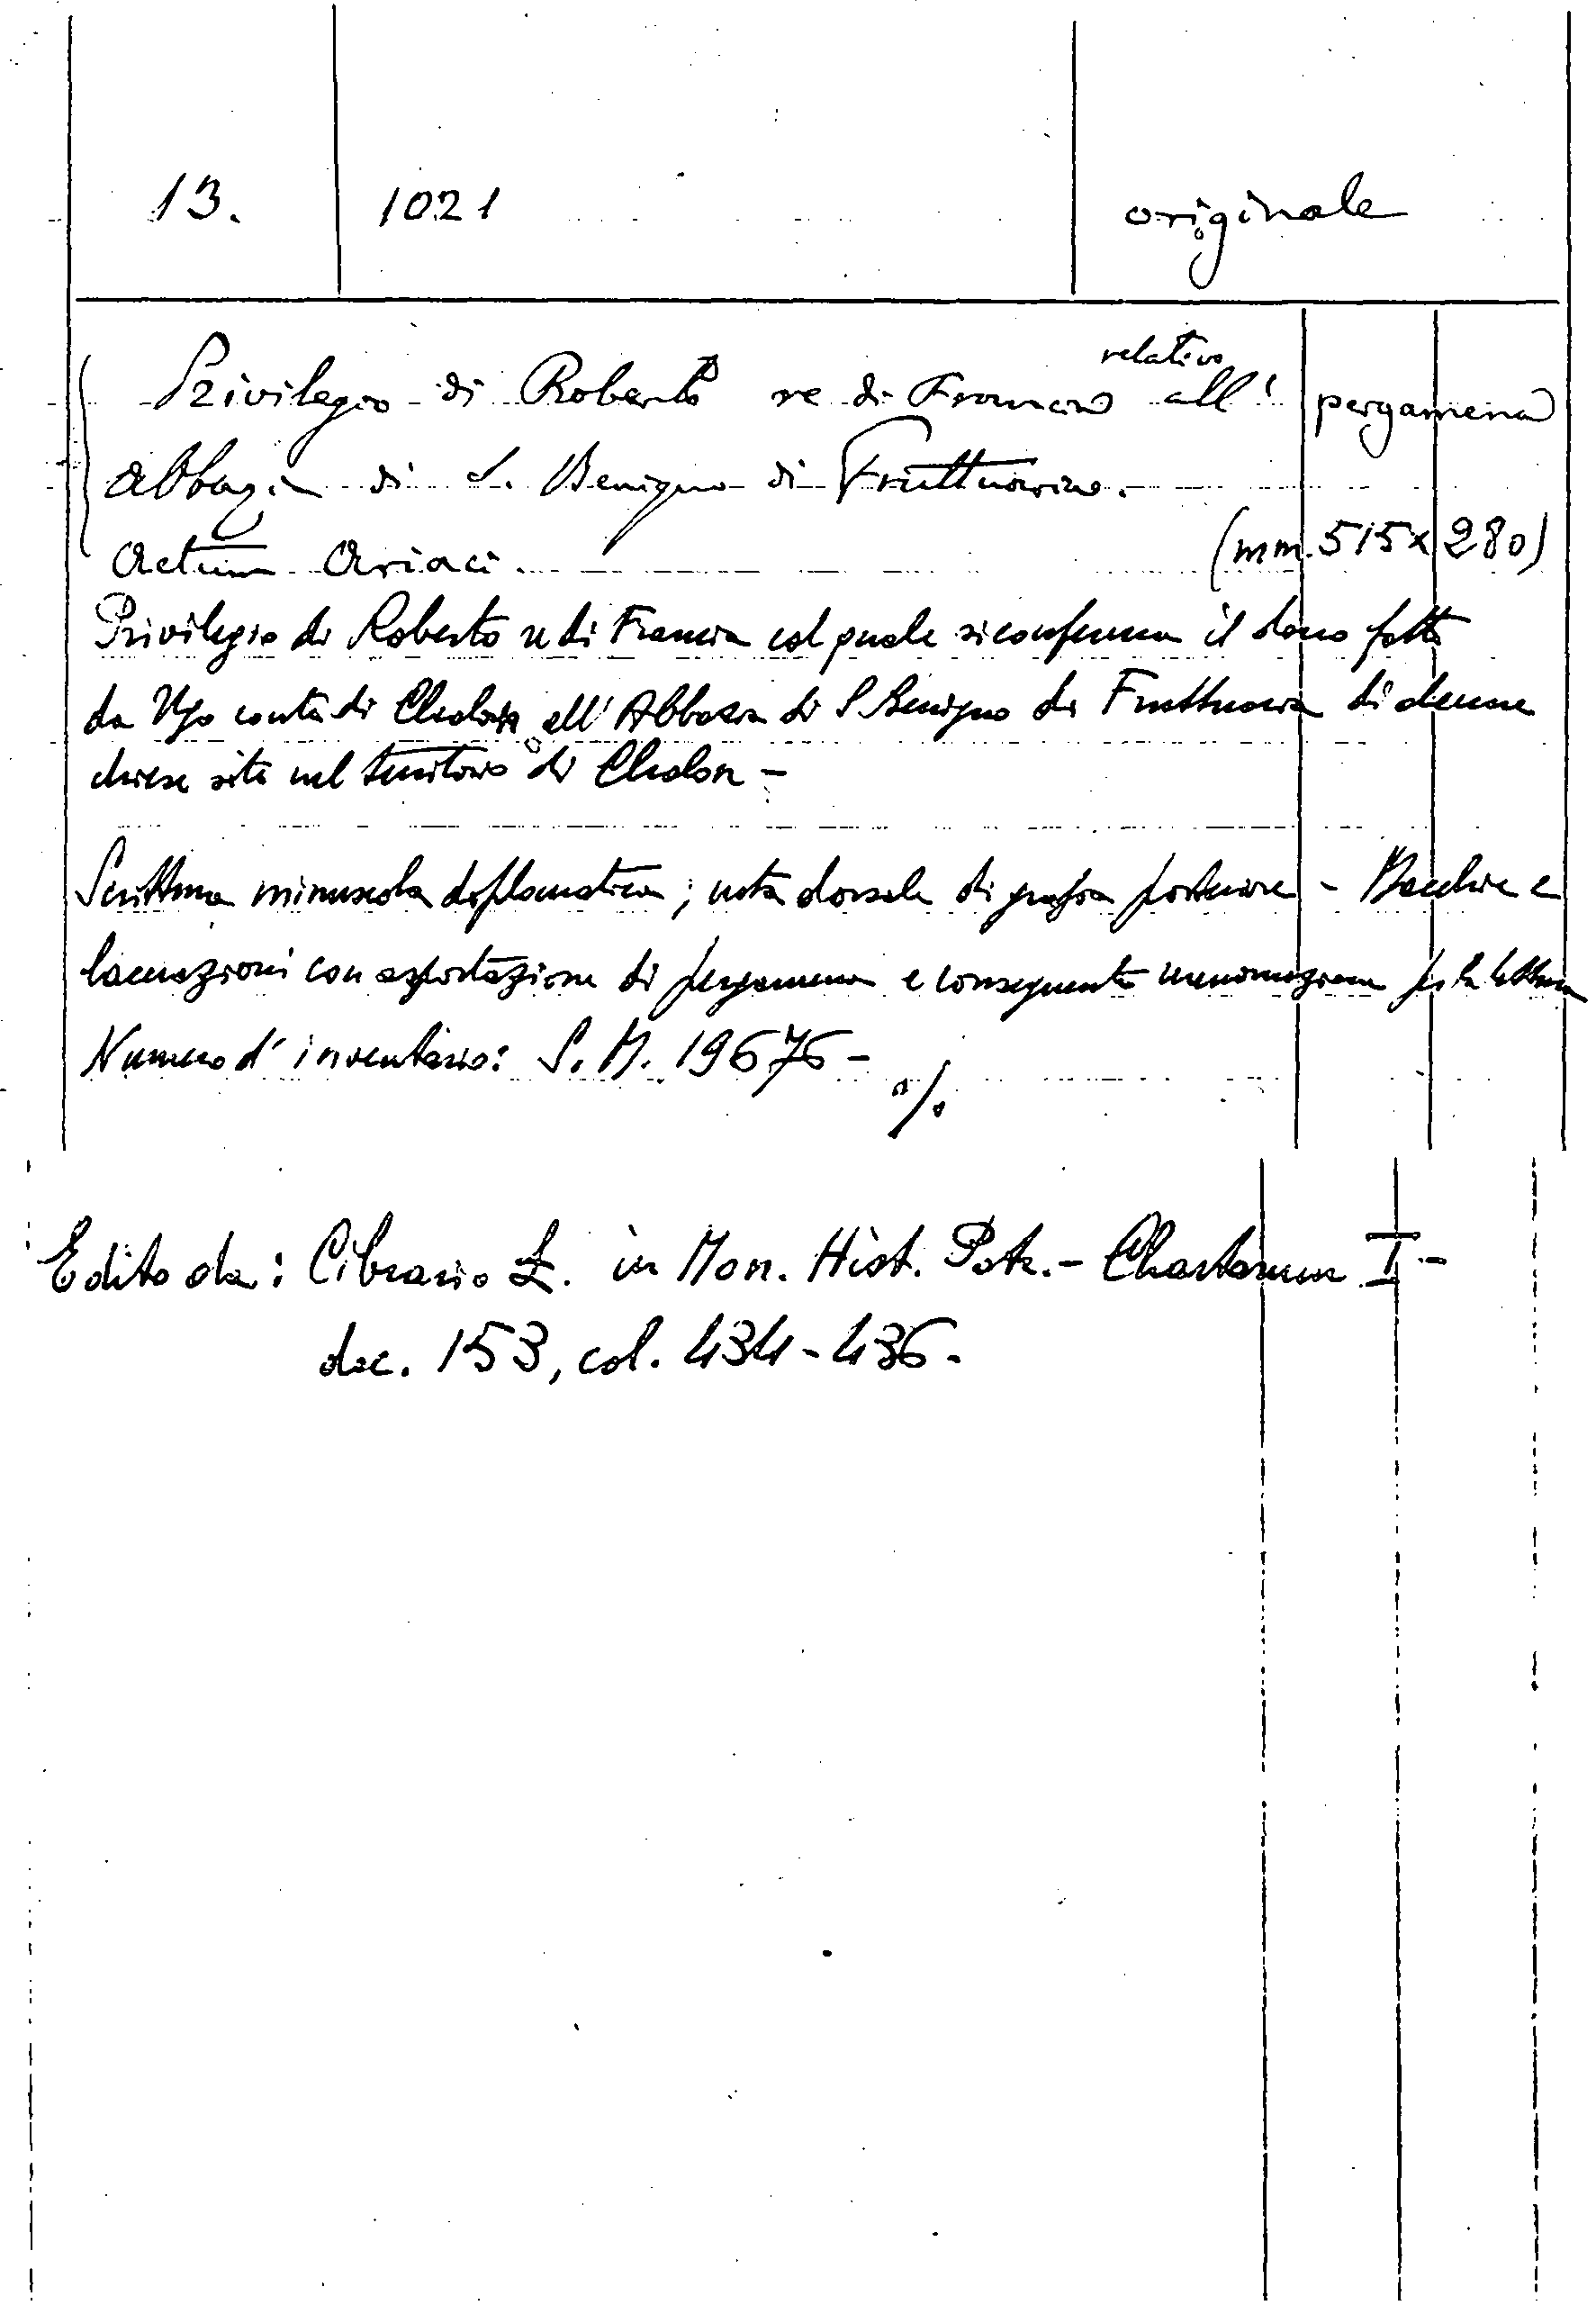 13. 1021 originale
relativo
Privilegio di Roberto re di Francia all' pergamena
Abbazia di S. Benigno di Fruttuaria.
Actum Ariaci. (mm. 515 x 280)
Privilegio di Roberto re di Francia col quale si conferma il dono fatto
da Ugo conte di Chalon all' Abbazia di S Benigno di Fruttuaria di alcune
chiese site nel territorio di Chalon -
Scrittura minuscola diplomatica; nota dorsale di grafia posteriore - Macchie e
lacerazioni con asportazione di pergamena e conseguente menomazione per la lettura
Numero d' inventario: S. M. 19676 - ./.
Edito da: Cibrario L. in Mon. Hist. Patr. - Chartarum I -
doc. 153, col. 434-436.